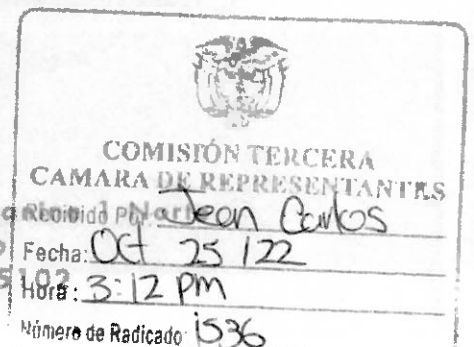 COMISIÓN TERCERA
CAMARA DE REPRESENTANTES
Recibido Por: Jean Carlos
Fecha: Oct 25 / 22
Hora: 3:12 pm
Número de Radicado: 1536